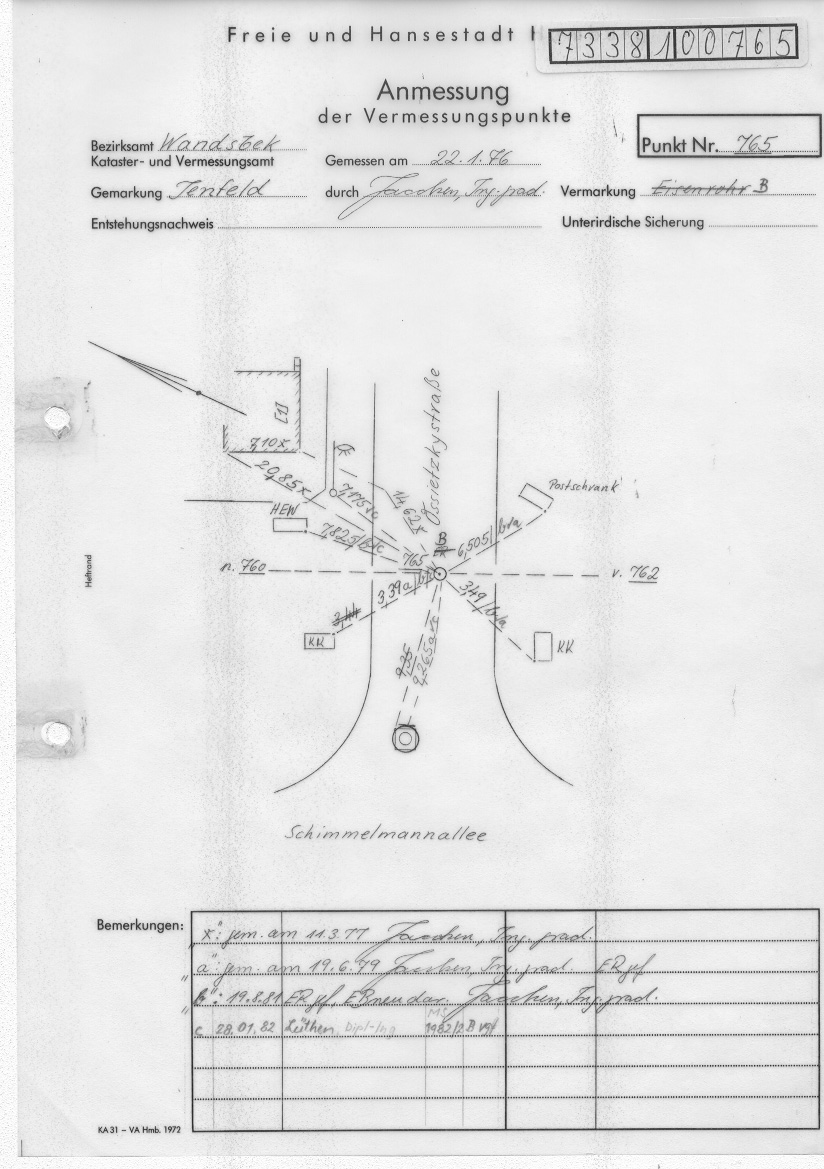 Freie und Hansestadt H
7338100765
Anmessung
der Vermessungspunkte
Punkt Nr. 765
Bezirksamt Wandsbek
Kataster- und Vermessungsamt
Gemessen am 22.1.76
Gemarkung Jenfeld
durch Jaschen, Ing. grad.
Vermarkung Eisenrohr B
Entstehungsnachweis
Unterirdische Sicherung
Ossietzkystraße
[1]
7,10x
20,85x
14,62x
7,175c
HEW
7,825/b/c
Postschrank
6,505/b/a
B
ER
765
n. 760
v. 762
3,39a/b/c
3,44
3,49/b/a
KK
KK
9,35
9,265a/c
Schimmelmannallee
Heftrand
Bemerkungen:
"x": gem. am 11.3.77 Jaschen, Ing. grad.
"a": gem. am 19.6.79 Jaschen, Ing. grad. ER gef
"b": 19.8.81 ER gef, ER neu dar. Jaschen, Ing. grad.
c 28.01.82 Lüthen, Dipl-Ing MS 1982/2 B vgf
KA 31 – VA Hmb. 1972